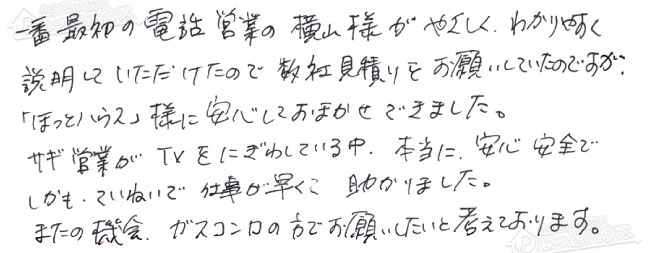 一番最初の電話営業の横山様がやさしく、わかりやすく
説明していただけたので数社見積りをお願いしていたのですが、
「ほっとハウス」様に安心しておまかせできました。
サギ営業がTVをにぎわしている中、本当に、安心安全で
しかも、ていねいで仕事が早くて助かりました。
またの機会、ガスコンロの方でお願いしたいと考えております。